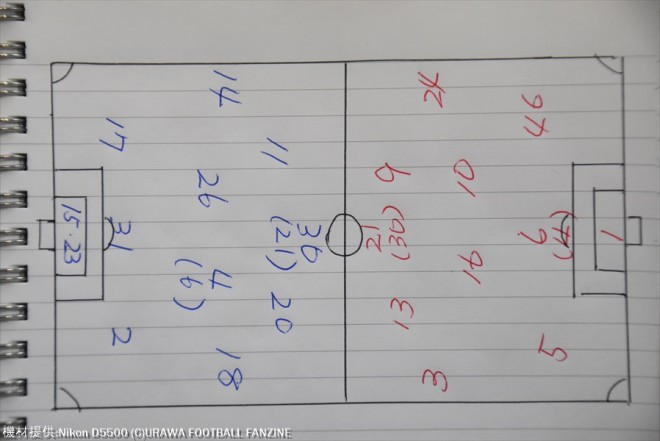 14
17
11
26
15・23
31
36
(21)
4
(6)
20
2
18
24
46
9
10
21
(30)
6
(4)
1
16
13
3
5
機材提供:Nikon D5500 (C)URAWA FOOTBALL FANZINE